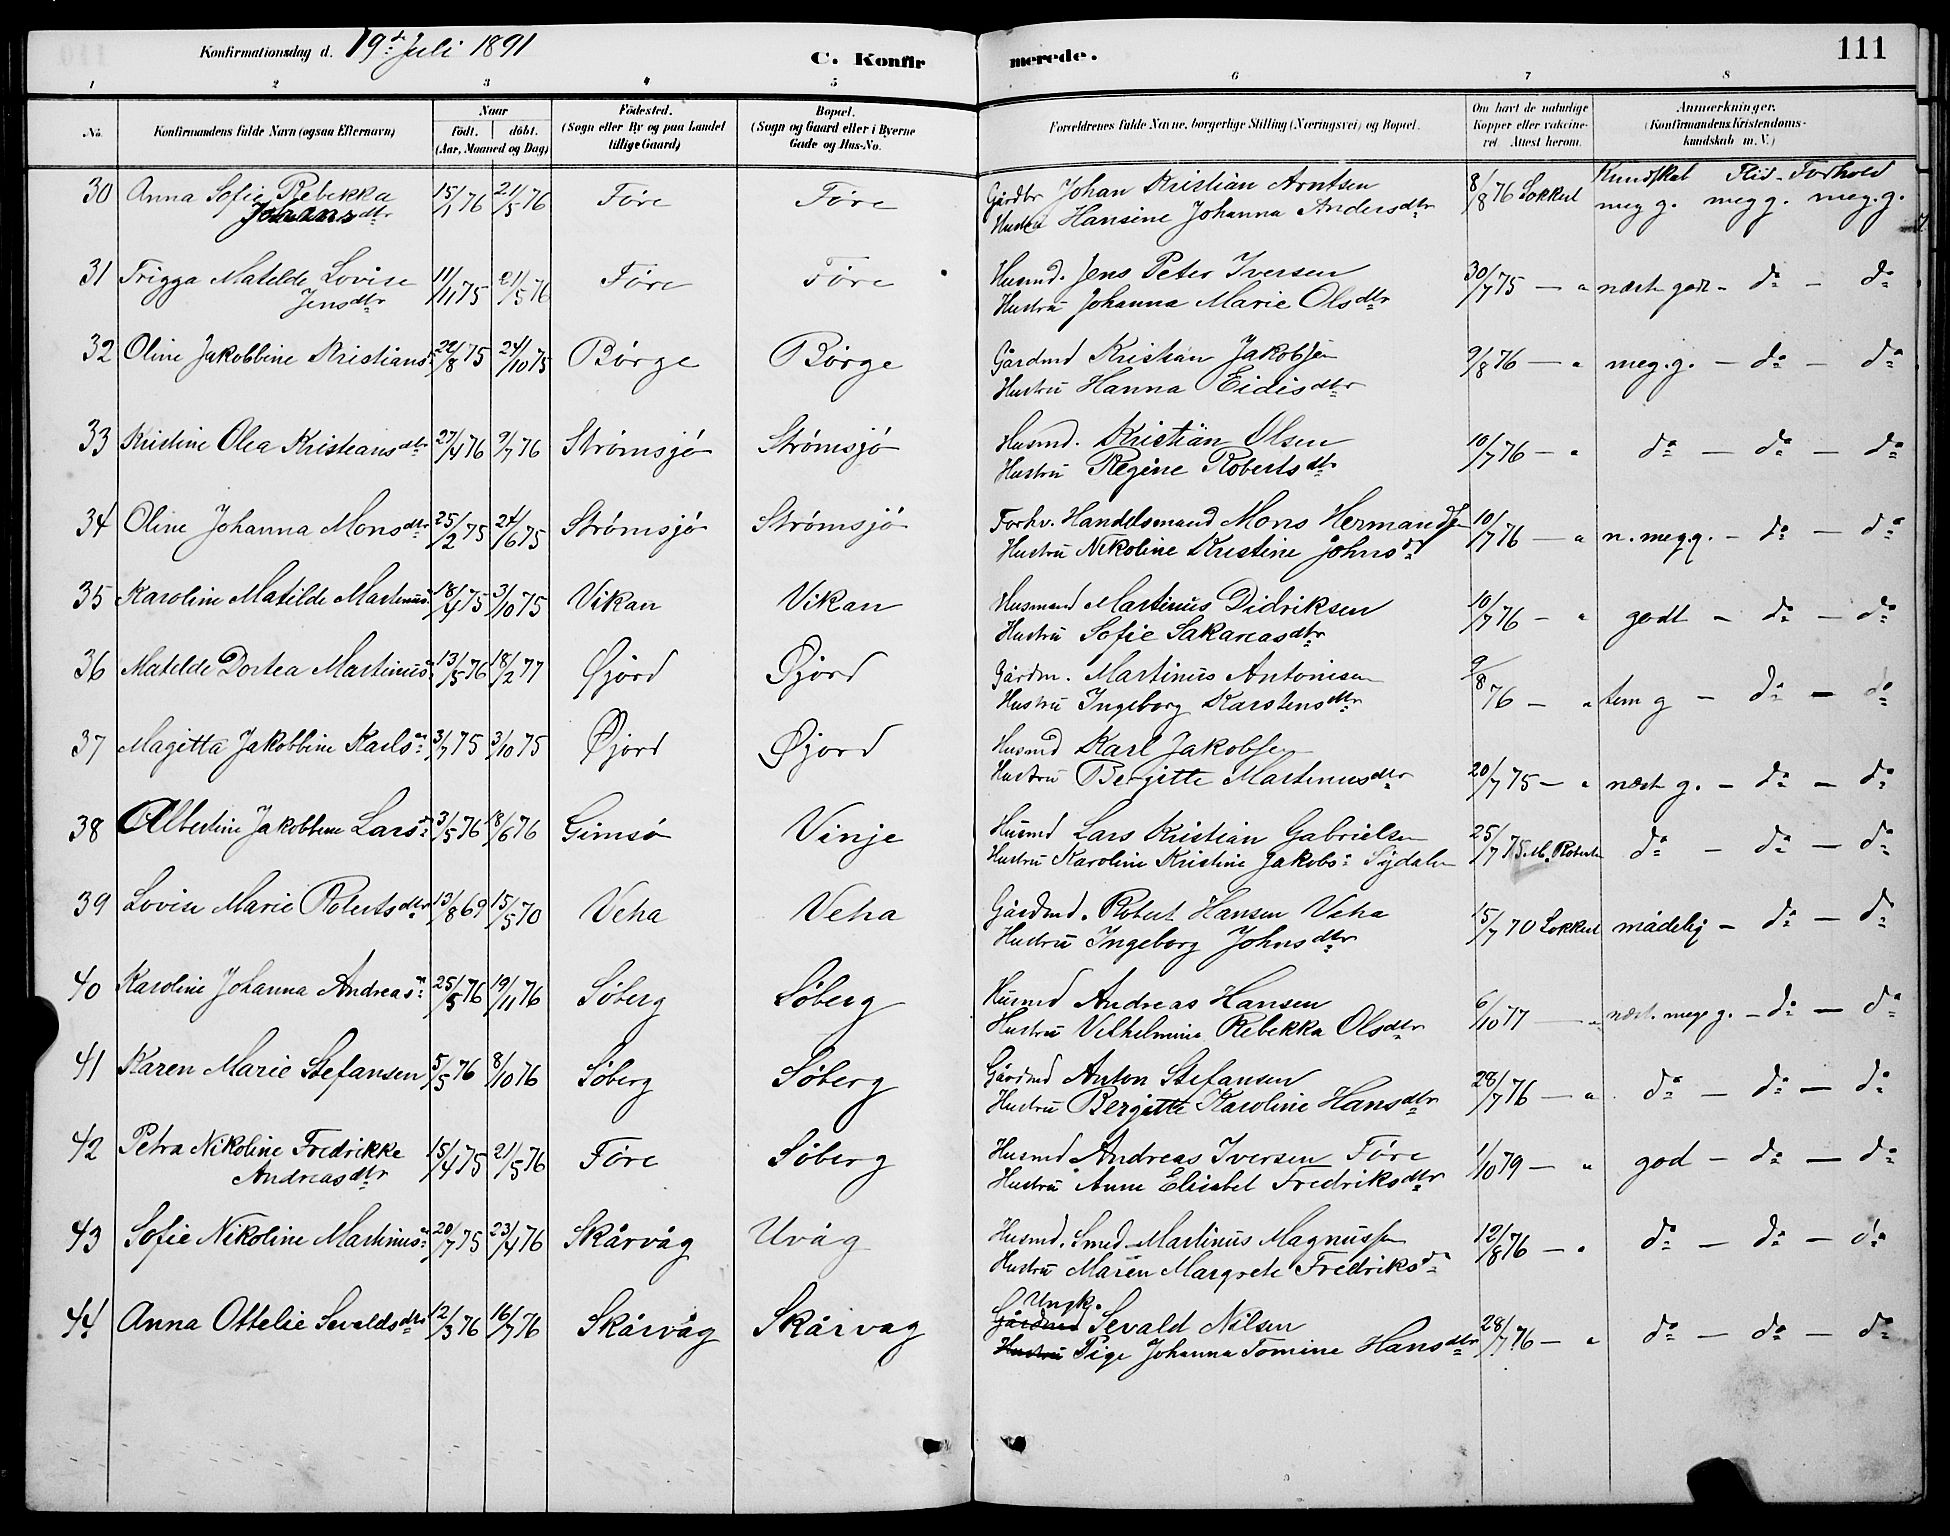 Konfirmationsdag d. 19de Juli 1891
C. Konfirmerede.
111
1 2 3 4 5 6 7 8
No.
Konfirmandens fulde Navn (ogsaa Efternavn)
Naar
födt. döbt.
(Aar, Maaned og Dag)
Födested.
(Sogn eller By og paa Landet
tillige Gaard)
Bopæl.
(Sogn og Gaard eller i Byerne
Gade og Hus-No.
Forældrenes fulde Navne, borgerlige Stilling (Næringsvei) og Bopæl.
Om havt de naturlige
Kopper eller vakcine-
ret. Attest herom.
Anmærkninger.
(Konfirmandens Kristendoms-
kundskab m. V.)
Kundskab Flid - Forhold
30 Anna Sofie Rebekka
Johansdtr 15/1 76 21/5 76 Före Före
Gårdbr Johan Kristian Arntsen
Hustru Hansine Johanna Andersdtr
8/8 76 Lokkert meg g. meg g. meg. g.
31 Frigga Matilde Lovise
Jensdtr 11/11 75 21/5 76 Före Före
Husmd. Jens Peter Iversen
Hustru Johanna Marie Olsdtr
30/7 75 — " næst godt - do - do
32 Oline Jakobbine Kristians 22/8 75 24/10 75 Börge Börge
Gårdmd Kristian Jakobsen
Hustru Hanna Eidisdtr
9/8 76 — " meg. g. - do - do
33 Kristine Olea Kristiansdtr 27/4 76 9/7 76 Strömsjö Strömsjö
Husmd. Kristian Olsen
Hustru Regine Robertsdtr
10/7 76 — " do - do - do
34 Oline Johanna Monsdtr 25/2 75 24/6 75 Strömsjö Strömsjö
Forhv. Handelsmand Mons Hermansen
Hustru Nikoline Kristine Johnsdr
10/7 76 — " n. meg. g. - do - do
35 Karoline Matilde Martinus 18/4 75 3/10 75 Vikan Vikan
Husmand Martinus Didriksen
Hustru Sofie Sakariasdtr
10/7 76 - " godt - do - do
36 Matilde Dortea Martinus 13/5 76 18/2 77 Øjord Øjord
Gårdm. Martinus Antonisen
Hustru Ingeborg Karstensdtr
9/8 76 - " tem g - do - do
37 Magitta Jakobbine Karls 3/7 75 3/10 75 Øjord Øjord
Husmd Karl Jakobsen
Hustru Bergitte Martinusdtr
20/7 75 — " næst g. - do - do
38 Albertine Jakobbine Lars 3/5 76 18/6 76 Gimsö Vinje
Husmd Lars Kristian Gabrielsen
Hustru Karoline Kristine Jakobs Sydalen
25/7 75 M. Robertsen do - do - do
39 Lovise Marie Robertsdtr 13/8 69 15/5 70 Veha Veha
Gårdmd. Robert Hansen Veha
Hustru Ingeborg Johnsdtr
15/7 70 Lokkert mådelig - do - do
40 Karoline Johanna Andreas 25/5 76 19/11 76 Söberg Söberg
Husmd Andreas Hansen
Hustru Vilhelmine Rebekka Olsdtr
6/10 77 — " næst. meget g. - do - do
41 Karen Marie Stefansen 5/5 76 8/10 76 Söberg Söberg
Gårdmd Anton Stefansen
Hustru Bergitte Karoline Hansdtr
28/7 76 — " do - do - do
42 Petra Nikoline Fredrikke
Andreasdtr 15/4 75 21/5 76 Före Söberg
Husmd Andreas Iversen Före
Hustru Anne Elisabet Fredriksdtr
1/10 79 — " god - do - do
43 Sofie Nikoline Martinus 20/7 75 23/4 76 Skårvåg Uvåg
Husmd. Smed Martinus Magnussen
Hustru Maren Margrete Fredriksd
12/8 76 — " do - do - do
44 Anna Ottelie Sevaldsdtr 12/3 76 16/7 76 Skårvåg Skårvag
Ungk.
Gårdmd Sevald Nilsen
Hustru Pige Johanna Tomine Hansdtr
28/7 76 — " do - do - do